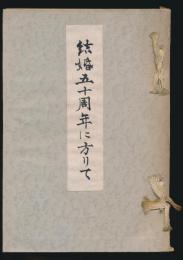 結婚五十周年に方りて